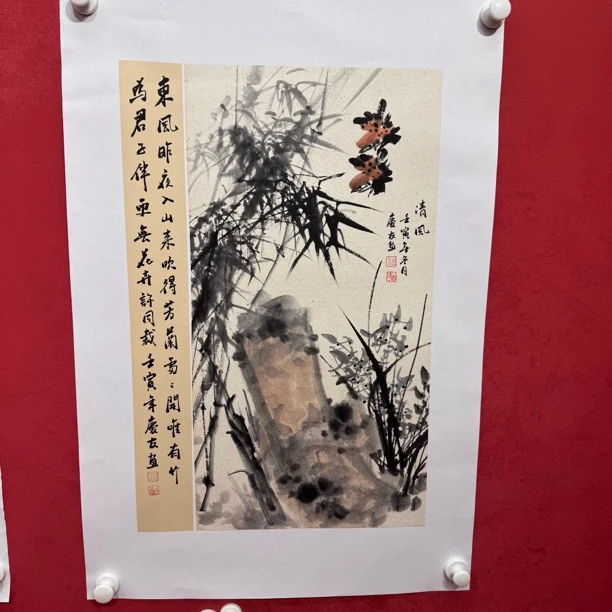 清風
壬寅年冬月
慶友畫
東風昨夜入山来吹得芳蘭處〻開唯有竹
為君子伴更無花卉許同栽壬寅年慶友畫